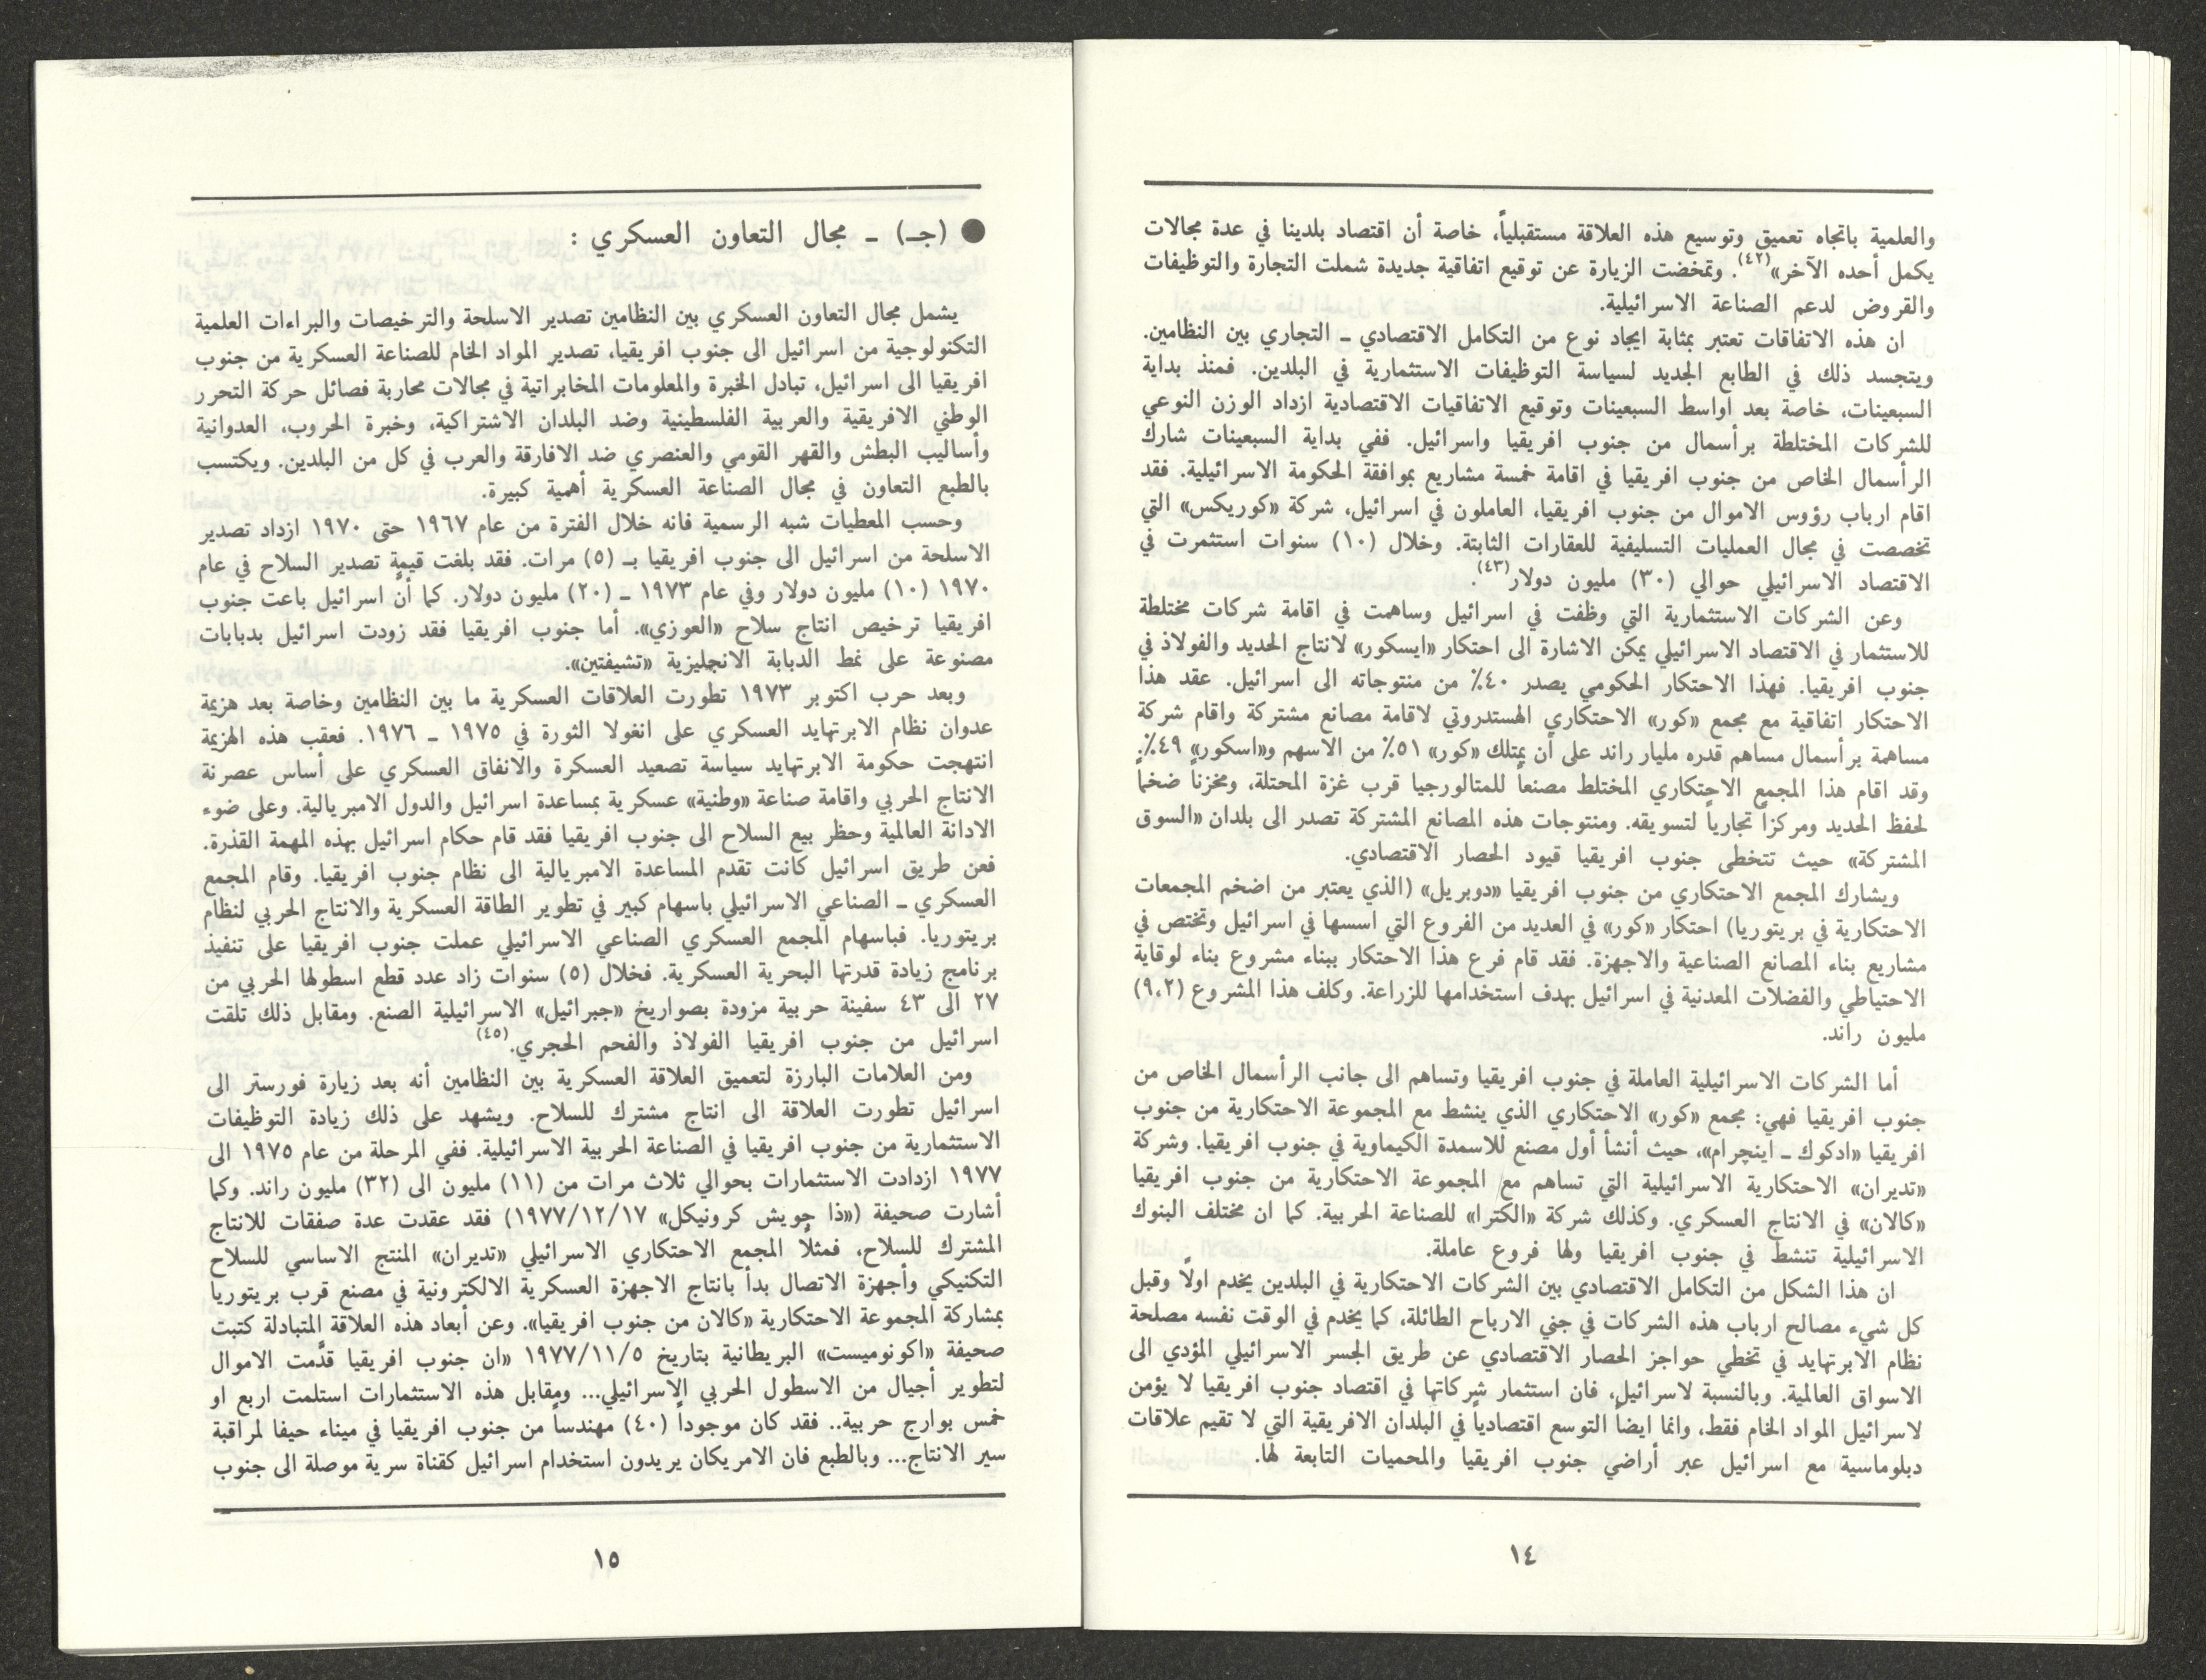 والعلمية باتجاه تعميق وتوسيع هذه العلاقة مستقبلياً، خاصة أن اقتصاد بلدينا في عدة مجالات
يكمل أحده الآخر»(٤٢). وتمخضت الزيارة عن توقيع اتفاقية جديدة شملت التجارة والتوظيفات
والقروض لدعم الصناعة الاسرائيلية.
ان هذه الاتفاقات تعتبر بمثابة ايجاد نوع من التكامل الاقتصادي ـ التجاري بين النظامين.
ويتجسد ذلك في الطابع الجديد لسياسة التوظيفات الاستثمارية في البلدين. فمنذ بداية
السبعينات، خاصة بعد اواسط السبعينات وتوقيع الاتفاقيات الاقتصادية ازداد الوزن النوعي
للشركات المختلطة برأسمال من جنوب افريقيا واسرائيل. ففي بداية السبعينات شارك
الرأسمال الخاص من جنوب افريقيا في اقامة خمسة مشاريع بموافقة الحكومة الاسرائيلية. فقد
اقام ارباب رؤوس الاموال من جنوب افريقيا، العاملون في اسرائيل، شركة «كوريكس» التي
تخصصت في مجال العمليات التسليفية للعقارات الثابتة. وخلال (١٠) سنوات استثمرت في
الاقتصاد الاسرائيلي حوالي (٣٠) مليون دولار(٤٣).
وعن الشركات الاستثمارية التي وظفت في اسرائيل وساهمت في اقامة شركات مختلطة
للاستثمار في الاقتصاد الاسرائيلي يمكن الاشارة الى احتكار «ايسكور» لانتاج الحديد والفولاذ في
جنوب افريقيا. فهذا الاحتكار الحكومي يصدر ٤٠٪ من منتوجاته الى اسرائيل. عقد هذا
الاحتكار اتفاقية مع مجمع «كور» الاحتكاري الهستدروتي لاقامة مصانع مشتركة واقام شركة
مساهمة برأسمال مساهم قدره مليار راند على أن يمتلك «كور» ٥١٪ من الاسهم و«اسكور» ٤٩٪.
وقد اقام هذا المجمع الاحتكاري المختلط مصنعاً للمتالورجيا قرب غزة المحتلة، ومخزناً ضخماً
لحفظ الحديد ومركزاً تجارياً لتسويقه. ومنتوجات هذه المصانع المشتركة تصدر الى بلدان «السوق
المشتركة» حيث تتخطى جنوب افريقيا قيود الحصار الاقتصادي.
ويشارك المجمع الاحتكاري من جنوب افريقيا «دوبريل» (الذي يعتبر من اضخم المجمعات
الاحتكارية في بريتوريا) احتكار «كور» في العديد من الفروع التي اسسها في اسرائيل وتختص في
مشاريع بناء المصانع الصناعية والاجهزة. فقد قام فرع هذا الاحتكار ببناء مشروع بناء لوقاية
الاحتياطي والفضلات المعدنية في اسرائيل بهدف استخدامها للزراعة. وكلف هذا المشروع (٩،٢)
مليون راند.
أما الشركات الاسرائيلية العاملة في جنوب افريقيا وتساهم الى جانب الرأسمال الخاص من
جنوب افريقيا فهي: مجمع «كور» الاحتكاري الذي ينشط مع المجموعة الاحتكارية من جنوب
افريقيا «ادكوك ـ اينچرام»، حيث أنشأ أول مصنع للاسمدة الكيماوية في جنوب افريقيا. وشركة
«تديران» الاحتكارية الاسرائيلية التي تساهم مع المجموعة الاحتكارية من جنوب افريقيا
«كالان» في الانتاج العسكري. وكذلك شركة «الكترا» للصناعة الحربية. كما ان مختلف البنوك
الاسرائيلية تنشط في جنوب افريقيا ولها فروع عاملة.
ان هذا الشكل من التكامل الاقتصادي بين الشركات الاحتكارية في البلدين يخدم اولًا وقبل
كل شيء مصالح ارباب هذه الشركات في جني الارباح الطائلة، كما يخدم في الوقت نفسه مصلحة
نظام الابرتهايد في تخطي حواجز الحصار الاقتصادي عن طريق الجسر الاسرائيلي المؤدي الى
الاسواق العالمية. وبالنسبة لاسرائيل، فان استثمار شركاتها في اقتصاد جنوب افريقيا لا يؤمن
لاسرائيل المواد الخام فقط، وانما ايضاً التوسع اقتصادياً في البلدان الافريقية التي لا تقيم علاقات
دبلوماسية مع اسرائيل عبر أراضي جنوب افريقيا والمحميات التابعة لها.
١٤
● (جـ) ـ مجال التعاون العسكري :
يشمل مجال التعاون العسكري بين النظامين تصدير الاسلحة والترخيصات والبراءات العلمية
التكنولوجية من اسرائيل الى جنوب افريقيا، تصدير المواد الخام للصناعة العسكرية من جنوب
افريقيا الى اسرائيل، تبادل الخبرة والمعلومات المخابراتية في مجالات محاربة فصائل حركة التحرر
الوطني الافريقية والعربية الفلسطينية وضد البلدان الاشتراكية، وخبرة الحروب، العدوانية
وأساليب البطش والقهر القومي والعنصري ضد الافارقة والعرب في كل من البلدين. ويكتسب
بالطبع التعاون في مجال الصناعة العسكرية أهمية كبيرة.
وحسب المعطيات شبه الرسمية فانه خلال الفترة من عام ١٩٦٧ حتى ١٩٧٠ ازداد تصدير
الاسلحة من اسرائيل الى جنوب افريقيا بـ (٥) مرات. فقد بلغت قيمة تصدير السلاح في عام
١٩٧٠ (١٠) مليون دولار وفي عام ١٩٧٣ ـ (٢٠) مليون دولار. كما أن اسرائيل باعت جنوب
افريقيا ترخيص انتاج سلاح «العوزي». أما جنوب افريقيا فقد زودت اسرائيل بدبابات
مصنوعة على نمط الدبابة الانجليزية «تشيفتين».
وبعد حرب اكتوبر ١٩٧٣ تطورت العلاقات العسكرية ما بين النظامين وخاصة بعد هزيمة
عدوان نظام الابرتهايد العسكري على انغولا الثورة في ١٩٧٥ ـ ١٩٧٦. فعقب هذه الهزيمة
انتهجت حكومة الابرتهايد سياسة تصعيد العسكرة والانفاق العسكري على أساس عصرنة
الانتاج الحربي واقامة صناعة «وطنية» عسكرية بمساعدة اسرائيل والدول الامبريالية. وعلى ضوء
الادانة العالمية وحظر بيع السلاح الى جنوب افريقيا فقد قام حكام اسرائيل بهذه المهمة القذرة.
فعن طريق اسرائيل كانت تقدم المساعدة الامبريالية الى نظام جنوب افريقيا. وقام المجمع
العسكري ـ الصناعي الاسرائيلي باسهام كبير في تطوير الطاقة العسكرية والانتاج الحربي لنظام
بريتوريا. فباسهام المجمع العسكري الصناعي الاسرائيلي عملت جنوب افريقيا على تنفيذ
برنامج زيادة قدرتها البحرية العسكرية. فخلال (٥) سنوات زاد عدد قطع اسطولها الحربي من
٢٧ الى ٤٣ سفينة حربية مزودة بصواريخ «جبرائيل» الاسرائيلية الصنع. ومقابل ذلك تلقت
اسرائيل من جنوب افريقيا الفولاذ والفحم الحجري.(٤٥)
ومن العلامات البارزة لتعميق العلاقة العسكرية بين النظامين أنه بعد زيارة فورستر الى
اسرائيل تطورت العلاقة الى انتاج مشترك للسلاح. ويشهد على ذلك زيادة التوظيفات
الاستثمارية من جنوب افريقيا في الصناعة الحربية الاسرائيلية. ففي المرحلة من عام ١٩٧٥ الى
١٩٧٧ ازدادت الاستثمارات بحوالي ثلاث مرات من (١١) مليون الى (٣٢) مليون راند. وكما
أشارت صحيفة («ذا جويش كرونيكل» ١٩٧٧/١٢/١٧) فقد عقدت عدة صفقات للانتاج
المشترك للسلاح، فمثلًا المجمع الاحتكاري الاسرائيلي «تديران» المنتج الاساسي للسلاح
التكنيكي وأجهزة الاتصال بدأ بانتاج الاجهزة العسكرية الالكترونية في مصنع قرب بريتوريا
بمشاركة المجموعة الاحتكارية «كالان من جنوب افريقيا». وعن أبعاد هذه العلاقة المتبادلة كتبت
صحيفة «اكونوميست» البريطانية بتاريخ ١٩٧٧/١١/٥ «ان جنوب افريقيا قدَّمت الاموال
لتطوير أجيال من الاسطول الحربي الاسرائيلي... ومقابل هذه الاستثمارات استلمت اربع او
خمس بوارج حربية.. فقد كان موجوداً (٤٠) مهندساً من جنوب افريقيا في ميناء حيفا لمراقبة
سير الانتاج... وبالطبع فان الامريكان يريدون استخدام اسرائيل كقناة سرية موصلة الى جنوب
١٥